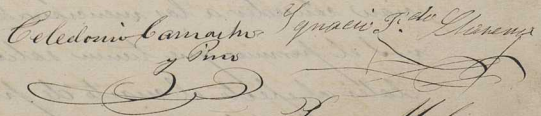 Celedonio Camacho
y Pino
Ignacio F.do Llarena